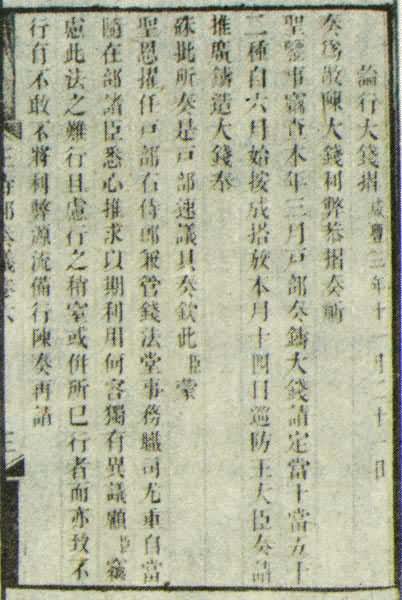 論行大錢摺 咸豐三年十一月二十一日
奏爲敬陳大錢利弊恭摺奏祈
聖鑒事竊查本年三月戶部奏鑄大錢請定當十當五十
二種自六月始按成搭放本月十四日巡防王大臣奏請
推廣鑄造大錢奉
硃批所奏是戶部速議具奏欽此臣蒙
聖恩擢任戶部右侍郎兼管錢法堂事務職司尤重自當
隨在部諸臣悉心推求以期利用何容獨有異議顧臣竊
慮此法之難行且慮行之稍窒或併所已行者而亦致不
行有不敢不將利弊源流備行陳奏再請
王侍郎奏議卷六 三